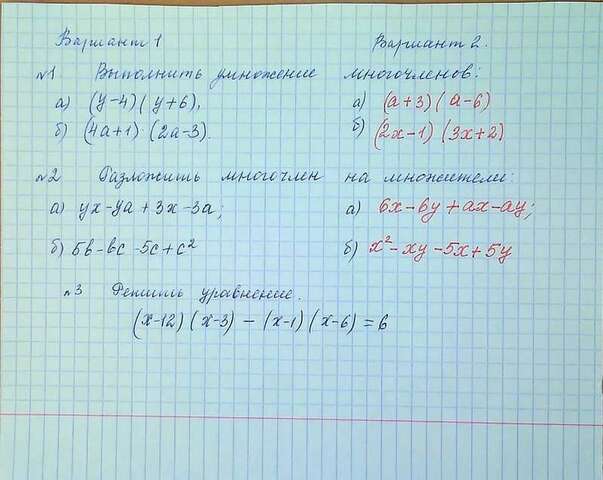 Вариант 1 Вариант 2.
№1 Выполнить умножение многочленов:
а) (y-4)(y+6), а) (a+3)(a-6)
б) (4a+1)·(2a-3). б) (2x-1)(3x+2)
№2 Разложить многочлен на множители:
а) yx-ya+3x-3a; а) 6x-6y+ax-ay;
б) 5b-bc-5c+c² б) x²-xy-5x+5y
№3 Решить уравнение.
(x-12)(x-3)-(x-1)(x-6)=6